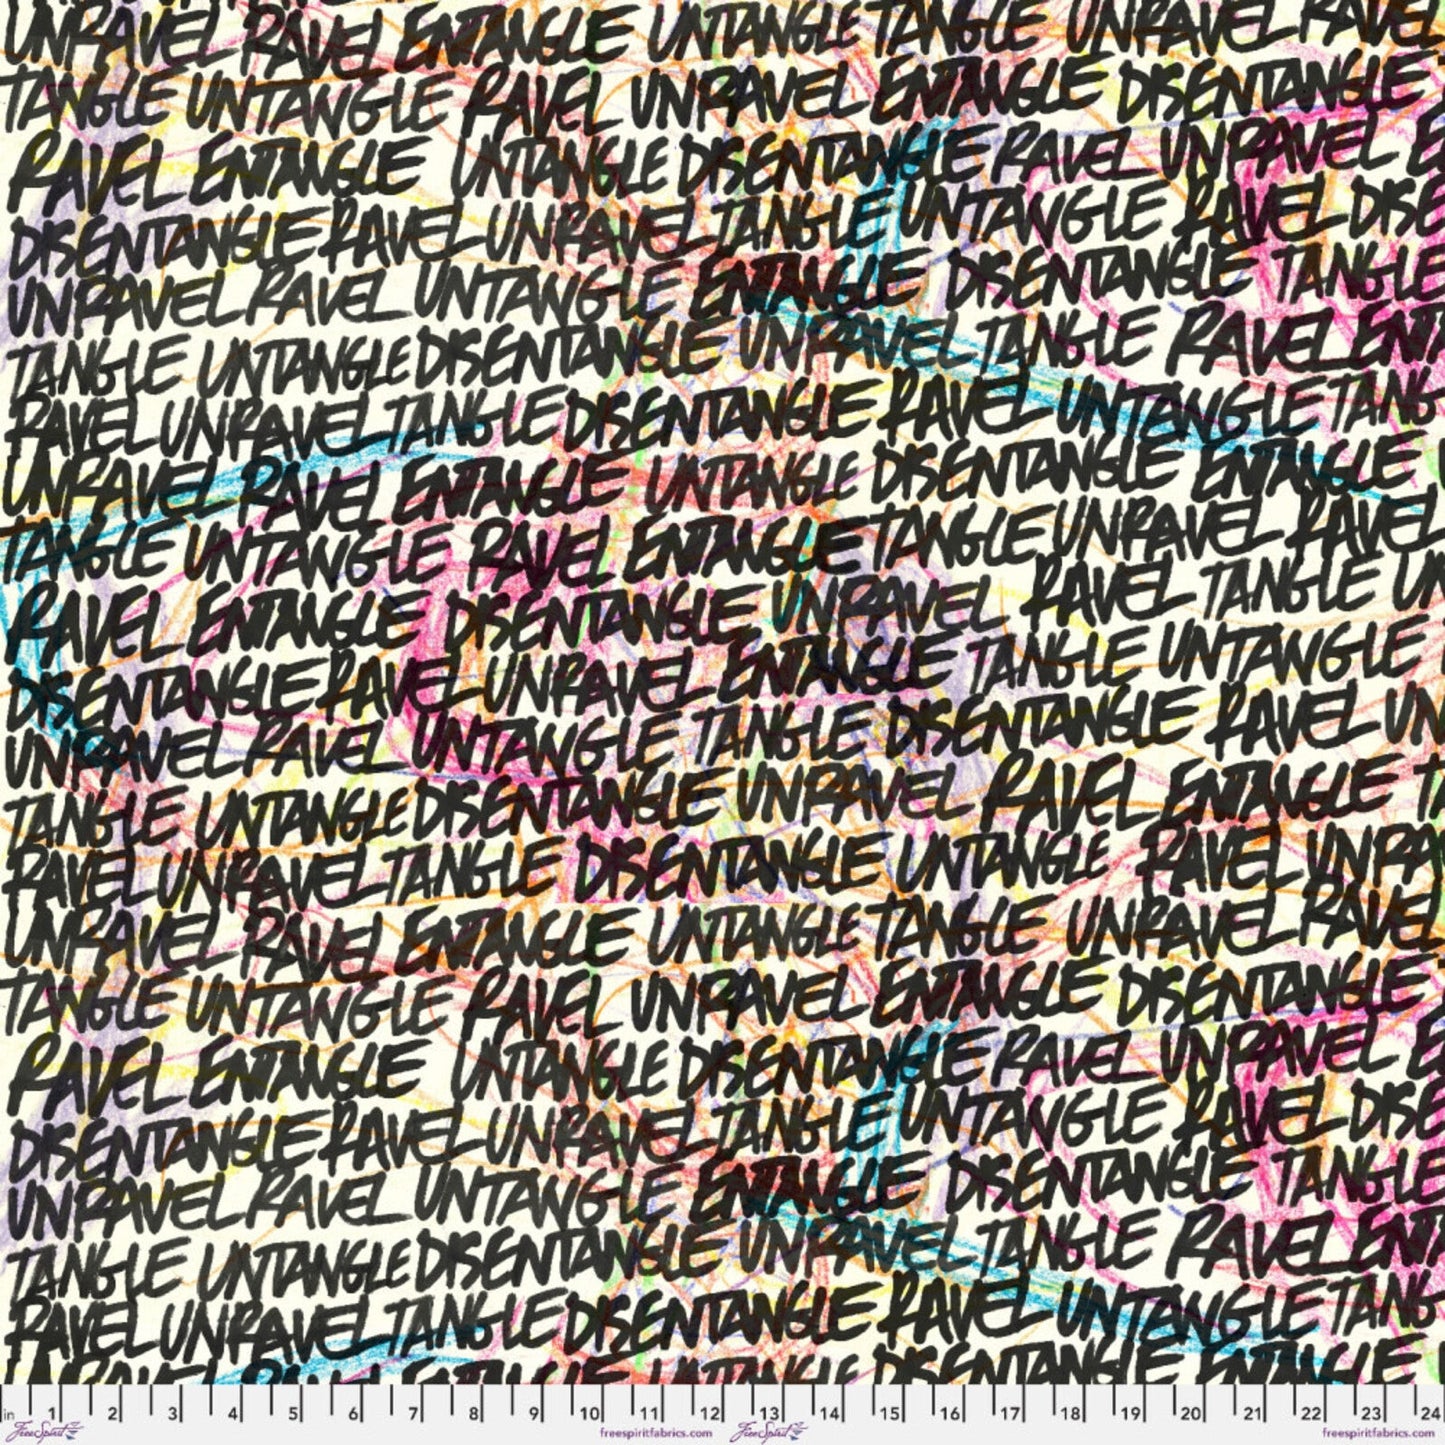 UNRAVEL RAVEL ENTANGLE UNTANGLE TANGLE UNRAVEL RAVEL
TANGLE UNTANGLE RAVEL UNRAVEL ENTANGLE DISENTANGLE
RAVEL ENTANGLE UNTANGLE DISENTANGLE RAVEL UNRAVEL E
DISENTANGLE RAVEL UNRAVEL TANGLE UNTANGLE RAVEL DISE
UNRAVEL RAVEL UNTANGLE ENTANGLE DISENTANGLE TANGLE
TANGLE UNTANGLE DISENTANGLE UNRAVEL TANGLE RAVEL ENT
RAVEL UNRAVEL TANGLE DISENTANGLE RAVEL UNTANGLE TANG
UNRAVEL RAVEL ENTANGLE UNTANGLE DISENTANGLE ENTANGLE
TANGLE UNTANGLE RAVEL ENTANGLE TANGLE UNRAVEL RAVEL
RAVEL ENTANGLE DISENTANGLE UNRAVEL RAVEL TANGLE UN
DISENTANGLE RAVEL UNRAVEL ENTANGLE TANGLE UNTANGLE
UNRAVEL RAVEL UNTANGLE TANGLE DISENTANGLE RAVEL UN
TANGLE UNTANGLE DISENTANGLE UNRAVEL RAVEL ENTANGLE T
RAVEL UNRAVEL TANGLE DISENTANGLE UNTANGLE RAVEL UNRA
UNRAVEL RAVEL ENTANGLE UNTANGLE TANGLE UNRAVEL RAVEL
TANGLE UNTANGLE RAVEL UNRAVEL ENTANGLE DISENTANGLE
RAVEL ENTANGLE UNTANGLE DISENTANGLE RAVEL UNRAVEL E
DISENTANGLE RAVEL UNRAVEL TANGLE UNTANGLE RAVEL DISE
UNRAVEL RAVEL UNTANGLE ENTANGLE DISENTANGLE TANGLE
TANGLE UNTANGLE DISENTANGLE UNRAVEL TANGLE RAVEL ENT
RAVEL UNRAVEL TANGLE DISENTANGLE RAVEL UNTANGLE TANG
UNRAVEL RAVEL ENTANGLE UNTANGLE DISENTANGLE ENTANGLE
in 1 2 3 4 5 6 7 8 9 10 11 12 13 14 15 16 17 18 19 20 21 22 23 24
FreeSpirit freespiritfabrics.com FreeSpirit freespiritfabrics.com